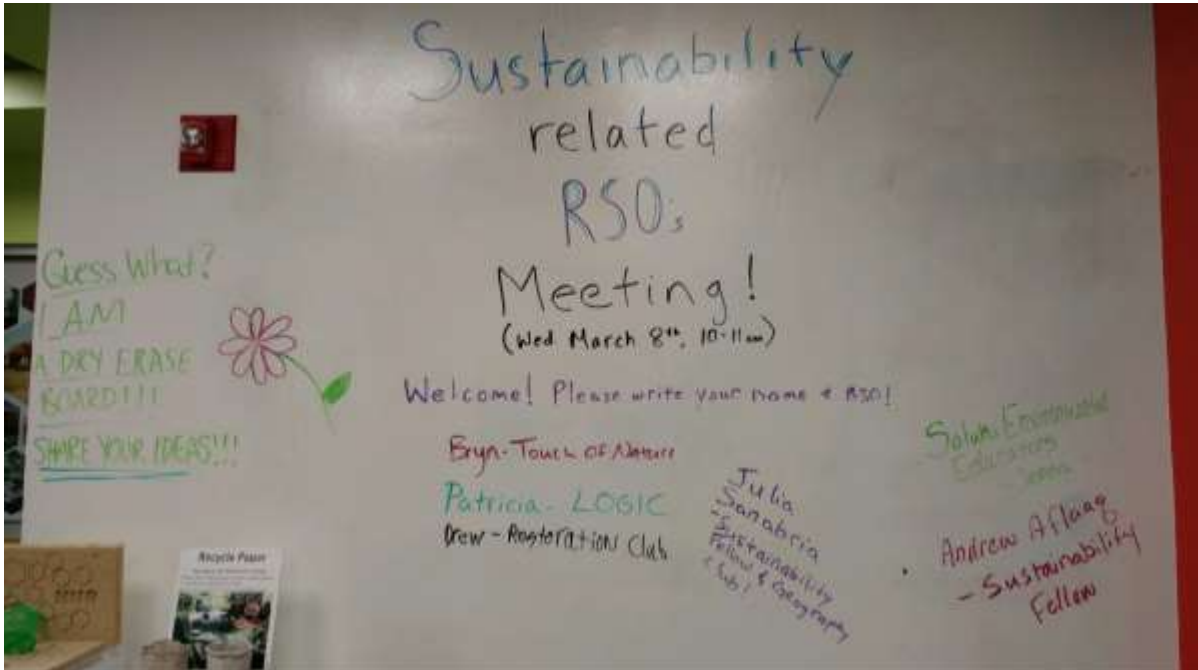 Sustainability
related
RSO's
Meeting!
(Wed March 8th, 10-11am)
Guess What?
I AM
A DRY ERASE
BOARD!!!
SHARE YOUR IDEAS!!!
Welcome! Please write your name & RSO!
Bryn - Touch of Nature
Patricia - LOGIC
Drew - Restoration Club
Julia
Sanabria
- Sustainability
Fellow & Geography
Club!
Saluki Environmental
Educators
Andrew Aflaag
- Sustainability
Fellow
Recycle Paper